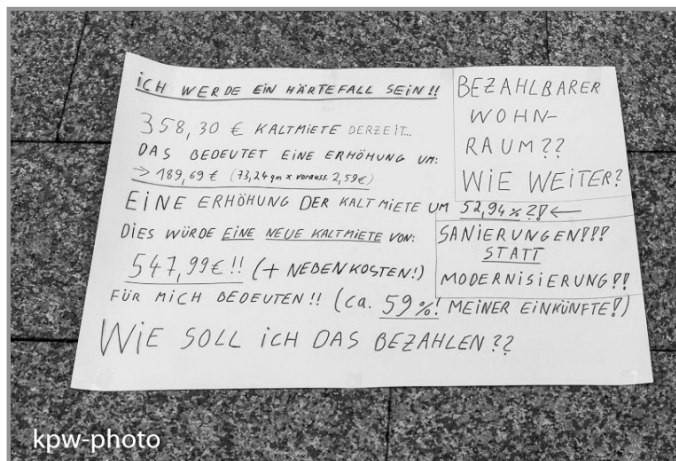 iCH WERDE EiN HÄRTEFALL SEiN!!
358,30 € KALTMIETE DERZEIT...
DAS BEDEUTET EINE ERHÖHUNG UM:
→ 189,69 € (73,24qm x vorauss. 2,59€)
EiNE ERHÖHUNG DER KALTMIETE UM 52,94%?! ←
DiES WÜRDE EINE NEUE KALTMIETE VON:
547,99€!! (+ NEBENKOSTEN!)
FÜR MiCH BEDEUTEN!! (ca. 59%! MEINER EiNKÜNFTE!)
WiE SOLL iCH DAS BEZAHLEN??
BEZAHLBARER
WOHN-
RAUM??
WiE WEiTER?
SANiERUNGEN!!!
STATT
MODERNiSiERUNG?!
kpw-photo